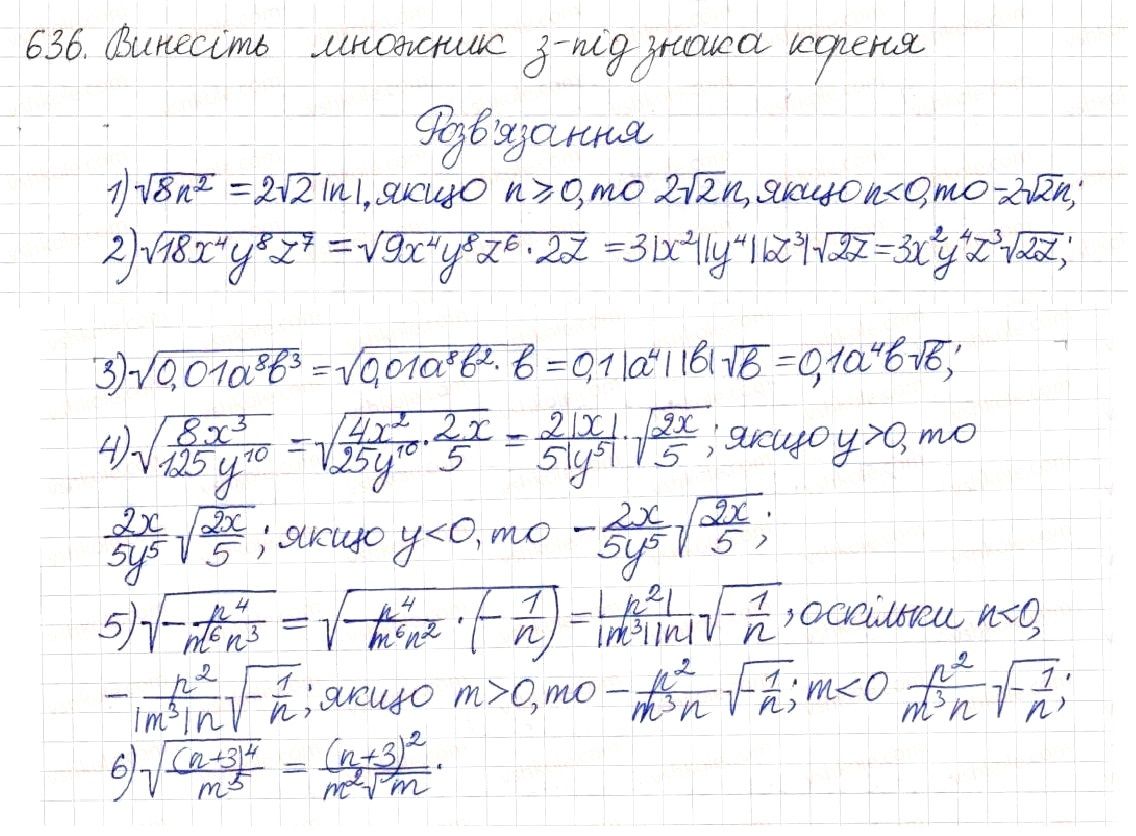 636. Винесіть множник з-під знака кореня
Розв'язання
1) √(8n²) = 2√2|n|, якщо n ≥ 0, то 2√2n, якщо n < 0, то -2√2n;
2) √(18x⁴y⁸z⁷) = √(9x⁴y⁸z⁶ · 2z) = 3|x²||y⁴||z³|√(2z) = 3x²y⁴z³√(2z);
3) √(0,01a⁸b³) = √(0,01a⁸b² · b) = 0,1|a⁴||b|√b = 0,1a⁴b√b;
4) √(8x³/125y¹⁰) = √(4x²/25y¹⁰ · 2x/5) = 2|x|/5|y⁵| · √(2x/5); якщо y > 0, то
2x/5y⁵ √(2x/5); якщо y < 0, то -2x/5y⁵ √(2x/5);
5) √(-n⁴/m⁶n³) = √(-n⁴/m⁶n² · (-1/n)) = |n²|/|m³||n| √(-1/n); оскільки n < 0,
-n²/|m³|n √(-1/n); якщо m > 0, то -n²/m³n √(-1/n); m < 0 n²/m³n √(-1/n);
6) √((n+3)⁴/m⁵) = (n+3)²/m²√m.